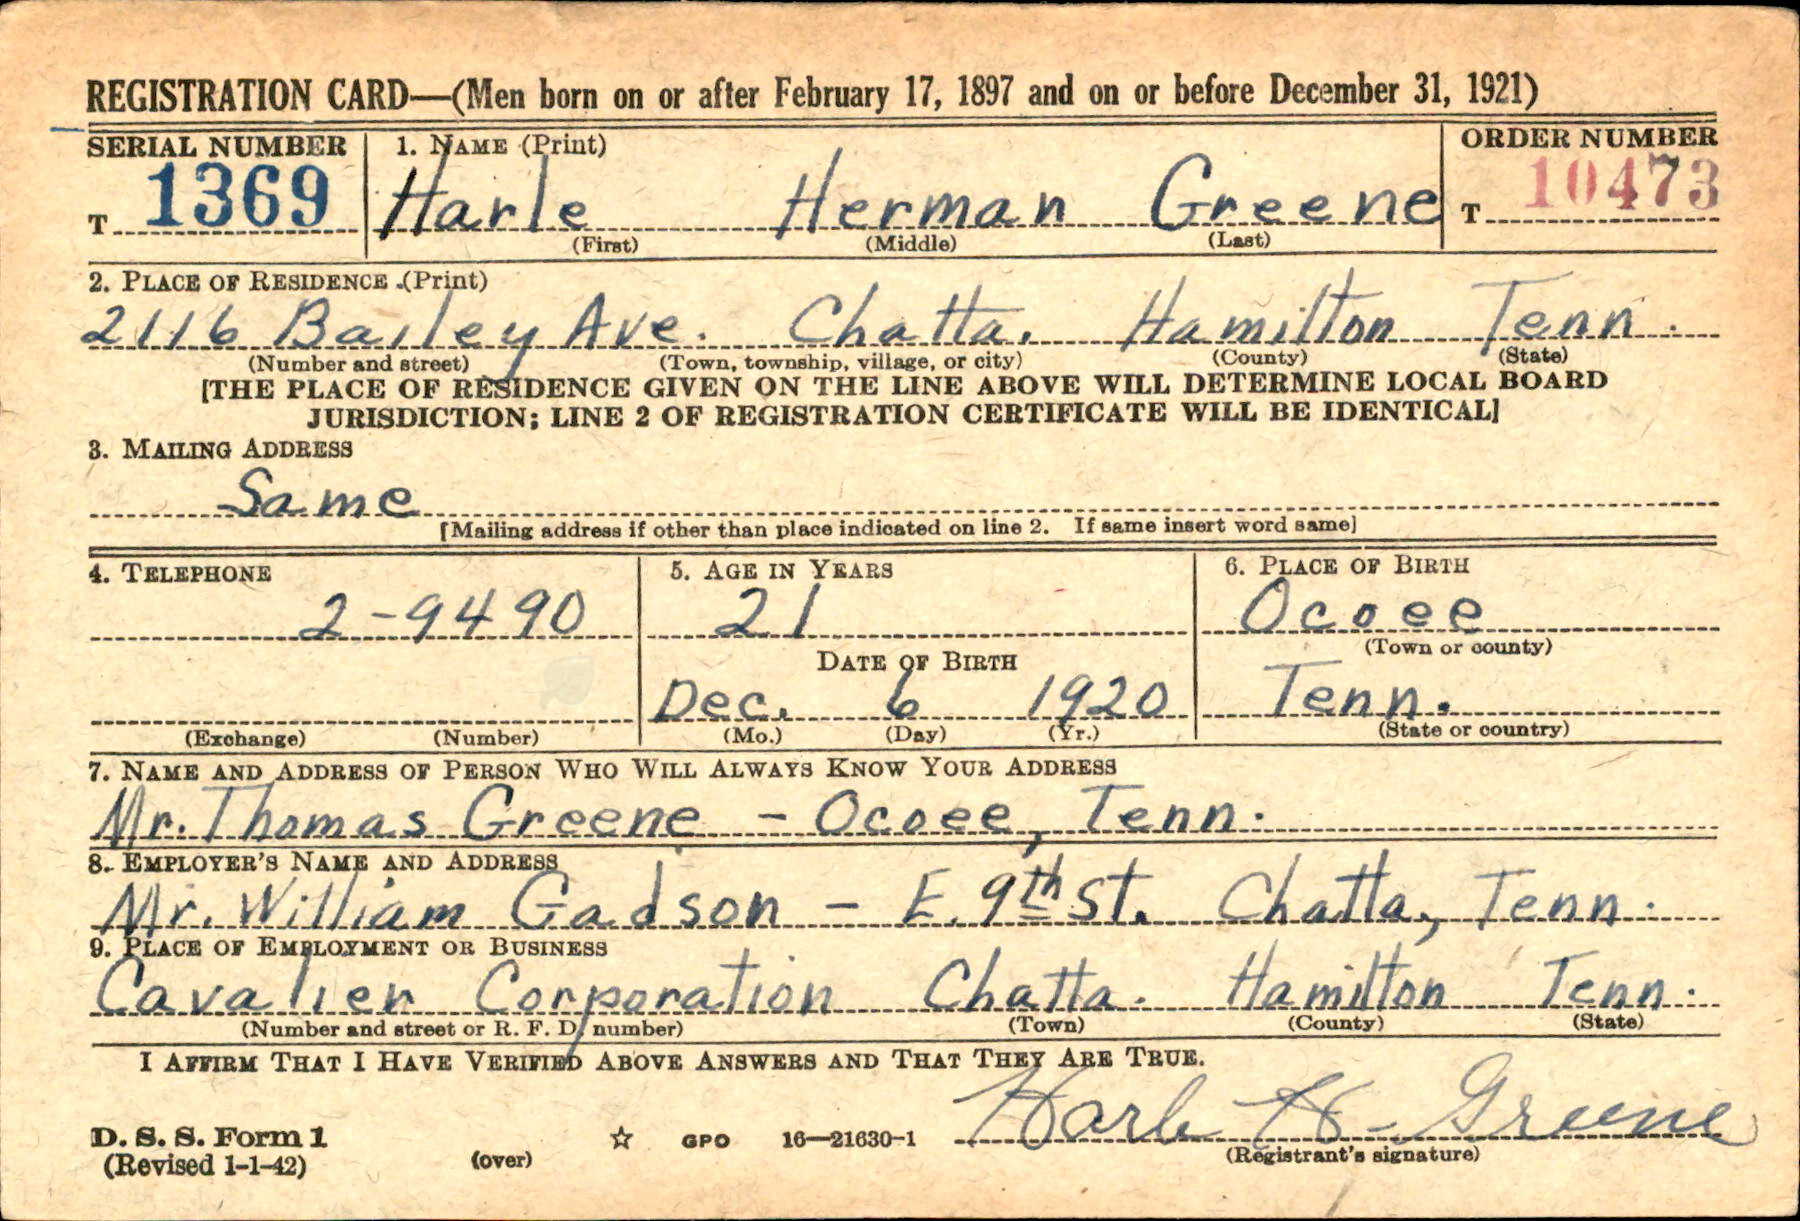 REGISTRATION CARD—(Men born on or after February 17, 1897 and on or before December 31, 1921)
SERIAL NUMBER 1. NAME (Print) ORDER NUMBER
T 1369 Harle Herman Greene T 10473
(First) (Middle) (Last)
2. PLACE OF RESIDENCE (Print)
2116 Bailey Ave. Chatta. Hamilton Tenn.
(Number and street) (Town, township, village, or city) (County) (State)
[THE PLACE OF RESIDENCE GIVEN ON THE LINE ABOVE WILL DETERMINE LOCAL BOARD
JURISDICTION; LINE 2 OF REGISTRATION CERTIFICATE WILL BE IDENTICAL]
3. MAILING ADDRESS
Same
[Mailing address if other than place indicated on line 2. If same insert word same]
4. TELEPHONE 5. AGE IN YEARS 6. PLACE OF BIRTH
2-9490 21 Ocoee
(Town or county)
DATE OF BIRTH
Dec. 6 1920 Tenn.
(Exchange) (Number) (Mo.) (Day) (Yr.) (State or country)
7. NAME AND ADDRESS OF PERSON WHO WILL ALWAYS KNOW YOUR ADDRESS
Mr. Thomas Greene - Ocoee, Tenn.
8. EMPLOYER'S NAME AND ADDRESS
Mr. William Gadson - E. 9th St. Chatta., Tenn.
9. PLACE OF EMPLOYMENT OR BUSINESS
Cavalier Corporation Chatta. Hamilton Tenn.
(Number and street or R. F. D. number) (Town) (County) (State)
I AFFIRM THAT I HAVE VERIFIED ABOVE ANSWERS AND THAT THEY ARE TRUE.
Harle H. Greene
D. S. S. Form 1 ☆ GPO 16—21630-1
(Revised 1-1-42) (over) (Registrant's signature)